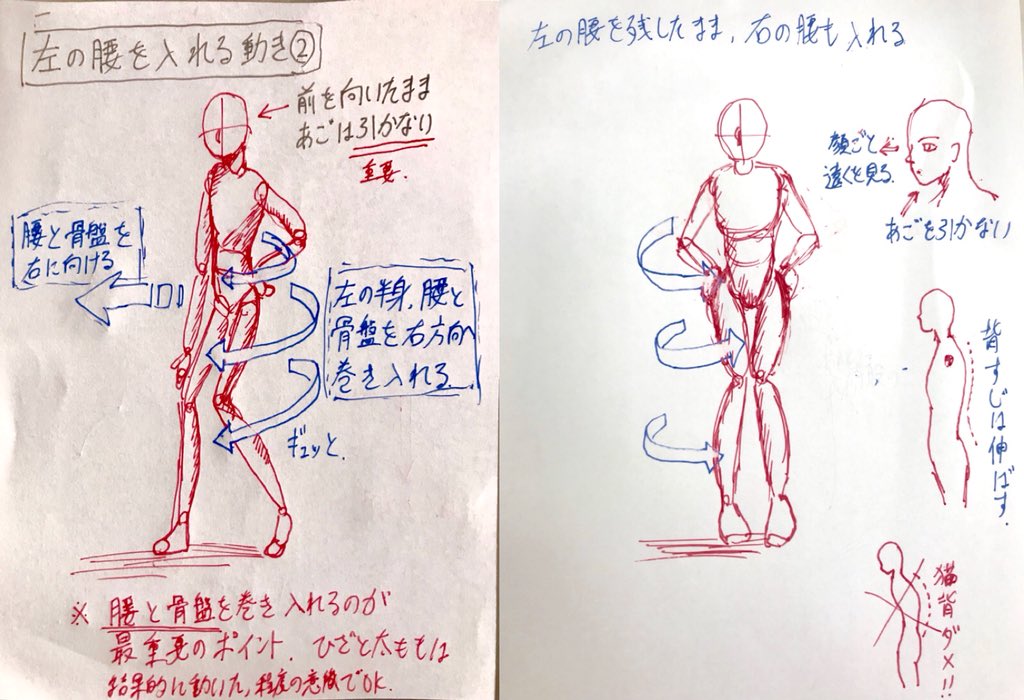 左の腰を入れる動き②
前を向いたまま
あごは引かない
重要.
腰と骨盤を
右に向ける
左の半身、腰と
骨盤を右方向へ
巻き入れる
ギュッと.
※ 腰と骨盤を巻き入れるのが
最重要のポイント. ひざと太ももは
結果的に動いた、程度の意識でOK.
左の腰を残したまま、右の腰も入れる
顔ごと
遠くを見る.
あごを引かない
背すじは伸ばす.
猫背ダメ!!